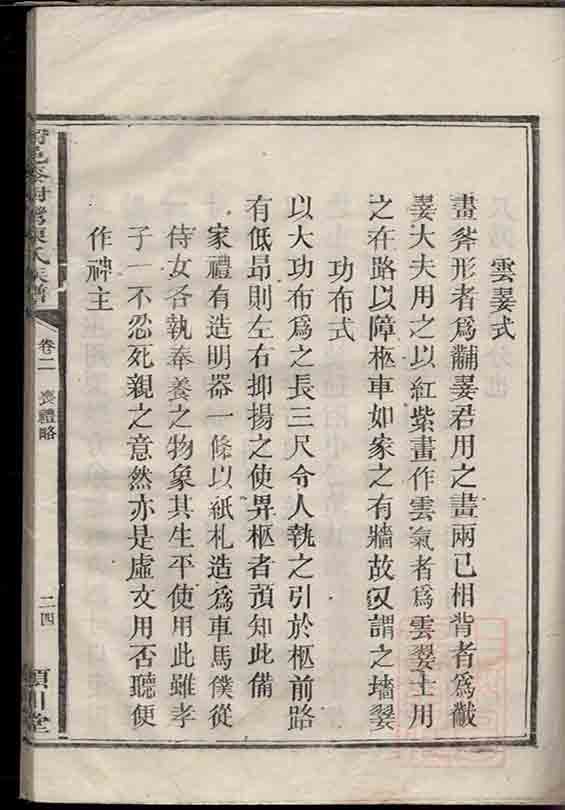 雲翣式
畫斧形者爲黼翣君用之畫兩己相背者爲黻
翣大夫用之以紅紫畫作雲氣者爲雲翣士用
之在路以障柩車如家之有牆故又謂之墻翣
功布式
以大功布爲之長三尺令人執之引於柩前路
有低昂則左右抑揚之使舁柩者預知此備
家禮有造明器一條以紙札造爲車馬僕從
侍女各執奉養之物象其生平使用此雖孝
子一不忍死親之意然亦是虛文用否聽便
作神主
陳氏族譜
卷二
喪禮略
二四
潁川堂